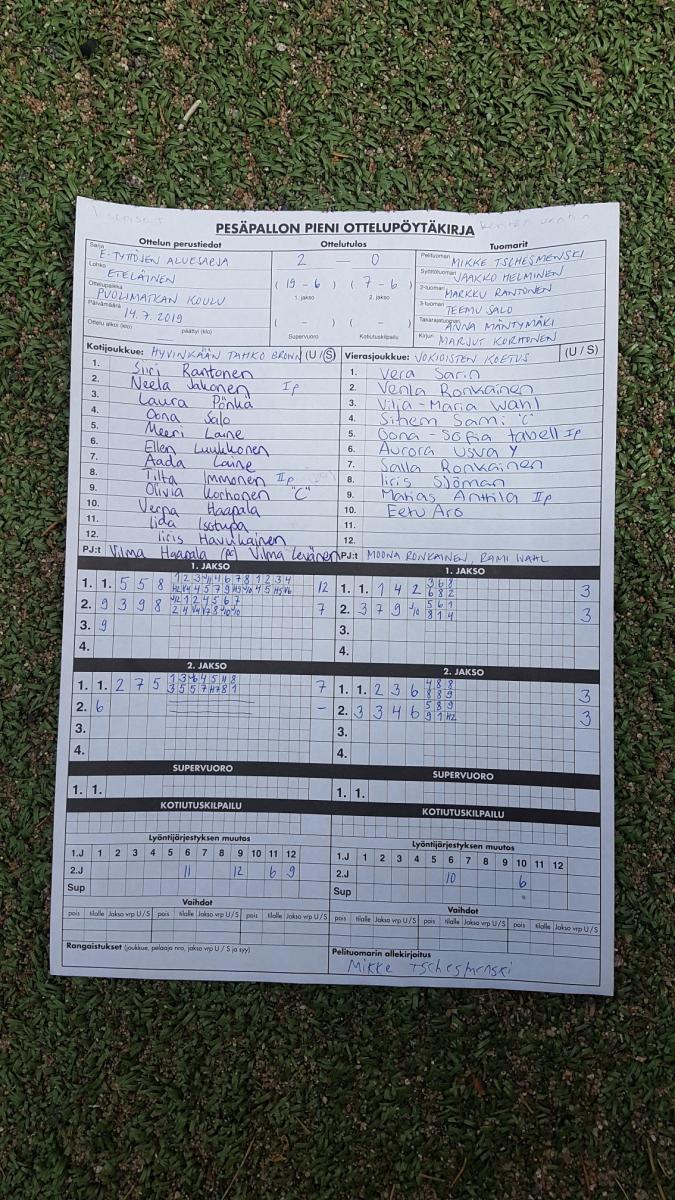 PESÄPALLON PIENI OTTELUPÖYTÄKIRJA
Ottelun perustiedot
Sarja E-TYTTÖJEN ALUESARJA
Lohko ETELÄINEN
Ottelupaikka PUOLIMATKAN KOULU
Päivämäärä 14.7.2019
Ottelu alkoi (klo) päättyi (klo)
Ottelutulos
2 — 0
( 19 - 6 ) ( 7 - 6 )
1. jakso 2. jakso
( - ) ( - )
Supervuoro Kotiutuskilpailu
Tuomarit
Pelituomari MIKKE TSCHESMENSKI
Syöttötuomari JAAKKO HELMINEN
2-tuomari MARKKU RANTONEN
3-tuomari TEEMU SALO
Takarajatuomari ANNA MÄNTYMÄKI
Kirjuri MARJUT KORHONEN
Kotijoukkue: HYVINKÄÄN TAHKO BROWN (U / S)
1. Siiri Rantonen
2. Neela Jakonen Ip
3. Laura Pönkä
4. Oona Salo
5. Meeri Laine
6. Ellen Luukkonen
7. Aada Laine
8. Tilta Immonen IIp
9. Olivia Korhonen "C"
10. Verna Haapala
11. Iida Isotupa
12. Iiris Havukainen
PJ:t Vilma Haapala Vilma Levänen
Vierasjoukkue: JOKIOISTEN KOETUS (U / S)
1. Vera Sarin
2. Venla Ronkainen
3. Vilja-Maria Wahl
4. Sihem Sami "C"
5. Oona-Sofia Tabell Ip
6. Aurora Usva Y
7. Salla Ronkainen
8. Iiris Sjöman
9. Matias Anttila IIp
10. Eetu Aro
11.
12.
PJ:t MOONA RONKAINEN, RAMI WAHL
1. JAKSO
1. 1. 5 5 8 12
2. 9 3 9 8 7
3. 9
4.
1. JAKSO
1. 1. 1 4 2 3 6 8 3
6 8 2
2. 3 7 9 5 6 1 3
8 1 4
3.
4.
2. JAKSO
1. 1. 2 7 5 7
2. 6 -
3.
4.
2. JAKSO
1. 1. 2 3 6 4 8 8 3
8 8 9
2. 3 3 4 6 5 8 9 3
3.
4.
SUPERVUORO
1. 1.
SUPERVUORO
1. 1.
KOTIUTUSKILPAILU
KOTIUTUSKILPAILU
Lyöntijärjestyksen muutos
1.J 1 2 3 4 5 6 7 8 9 10 11 12
2.J 11 12 6 9
Sup
Lyöntijärjestyksen muutos
1.J 1 2 3 4 5 6 7 8 9 10 11 12
2.J 10 6
Sup
Vaihdot
pois tilalle Jakso vrp U / S pois tilalle Jakso vrp U / S pois tilalle Jakso vrp U / S
Vaihdot
pois tilalle Jakso vrp U / S pois tilalle Jakso vrp U / S pois tilalle Jakso vrp U / S
Rangaistukset (joukkue, pelaaja nro, jakso vrp U / S ja syy)
Pelituomarin allekirjoitus
Mikke Tschesmenski